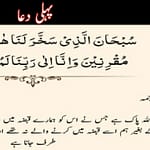 پہلی دعا
سُبْحَانَ الَّذِیْ سَخَّرَ لَنَا
مُقْرِنِیْنَ وَاِنَّا اِلٰی رَبِّنَا
اللہ پاک ہے جس نے اس کو ہمارے قبضہ میں
بغیر ہم اسے قبضہ میں کرنے والے نہ تھے اور
طرف جانا ہے